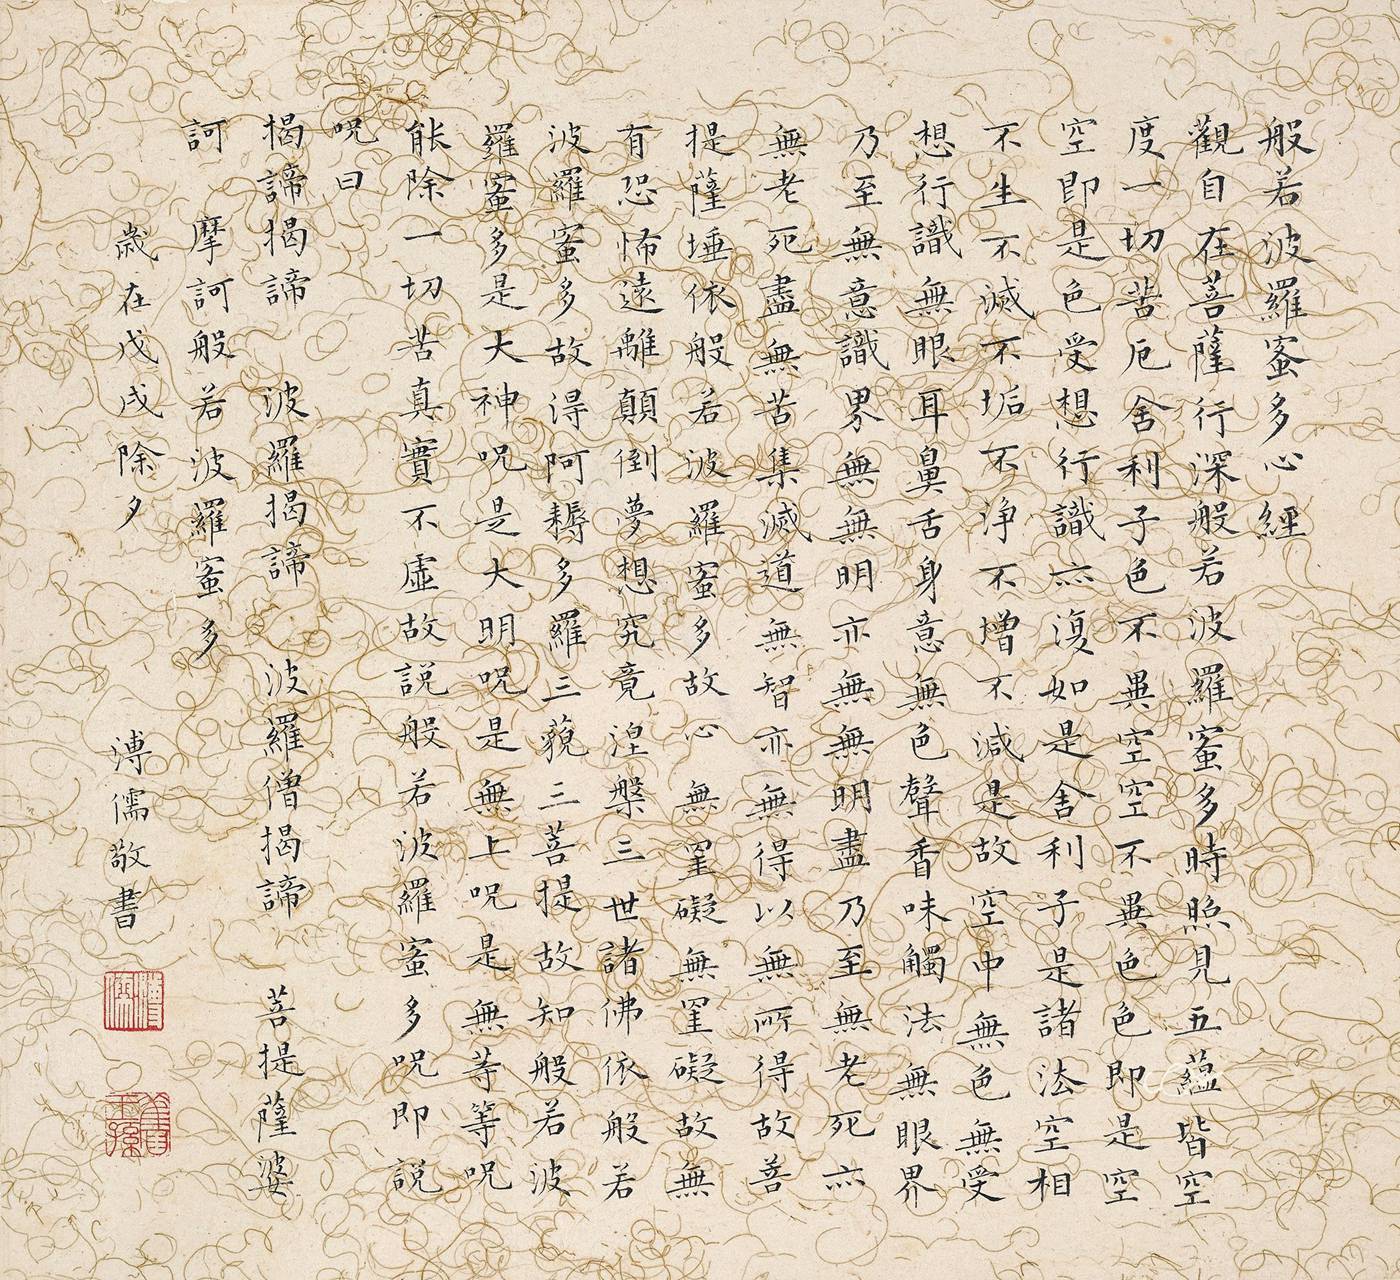 般若波羅蜜多心經
觀自在菩薩行深般若波羅蜜多時照見五蘊皆空
度一切苦厄舍利子色不異空空不異色色即是空
空即是色受想行識亦復如是舍利子是諸法空相
不生不滅不垢不淨不增不減是故空中無色無受
想行識無眼耳鼻舌身意無色聲香味觸法無眼界
乃至無意識界無無明亦無無明盡乃至無老死亦
無老死盡無苦集滅道無智亦無得以無所得故菩
提薩埵依般若波羅蜜多故心無罣礙無罣礙故無
有恐怖遠離顛倒夢想究竟涅槃三世諸佛依般若
波羅蜜多故得阿耨多羅三藐三菩提故知般若波
羅蜜多是大神咒是大明咒是無上咒是無等等咒
能除一切苦真實不虛故說般若波羅蜜多咒即說
咒曰
揭諦揭諦 波羅揭諦 波羅僧揭諦 菩提薩婆
訶 摩訶般若波羅蜜多
歲在戊戌除夕 溥儒敬書
溥儒
舊王孫